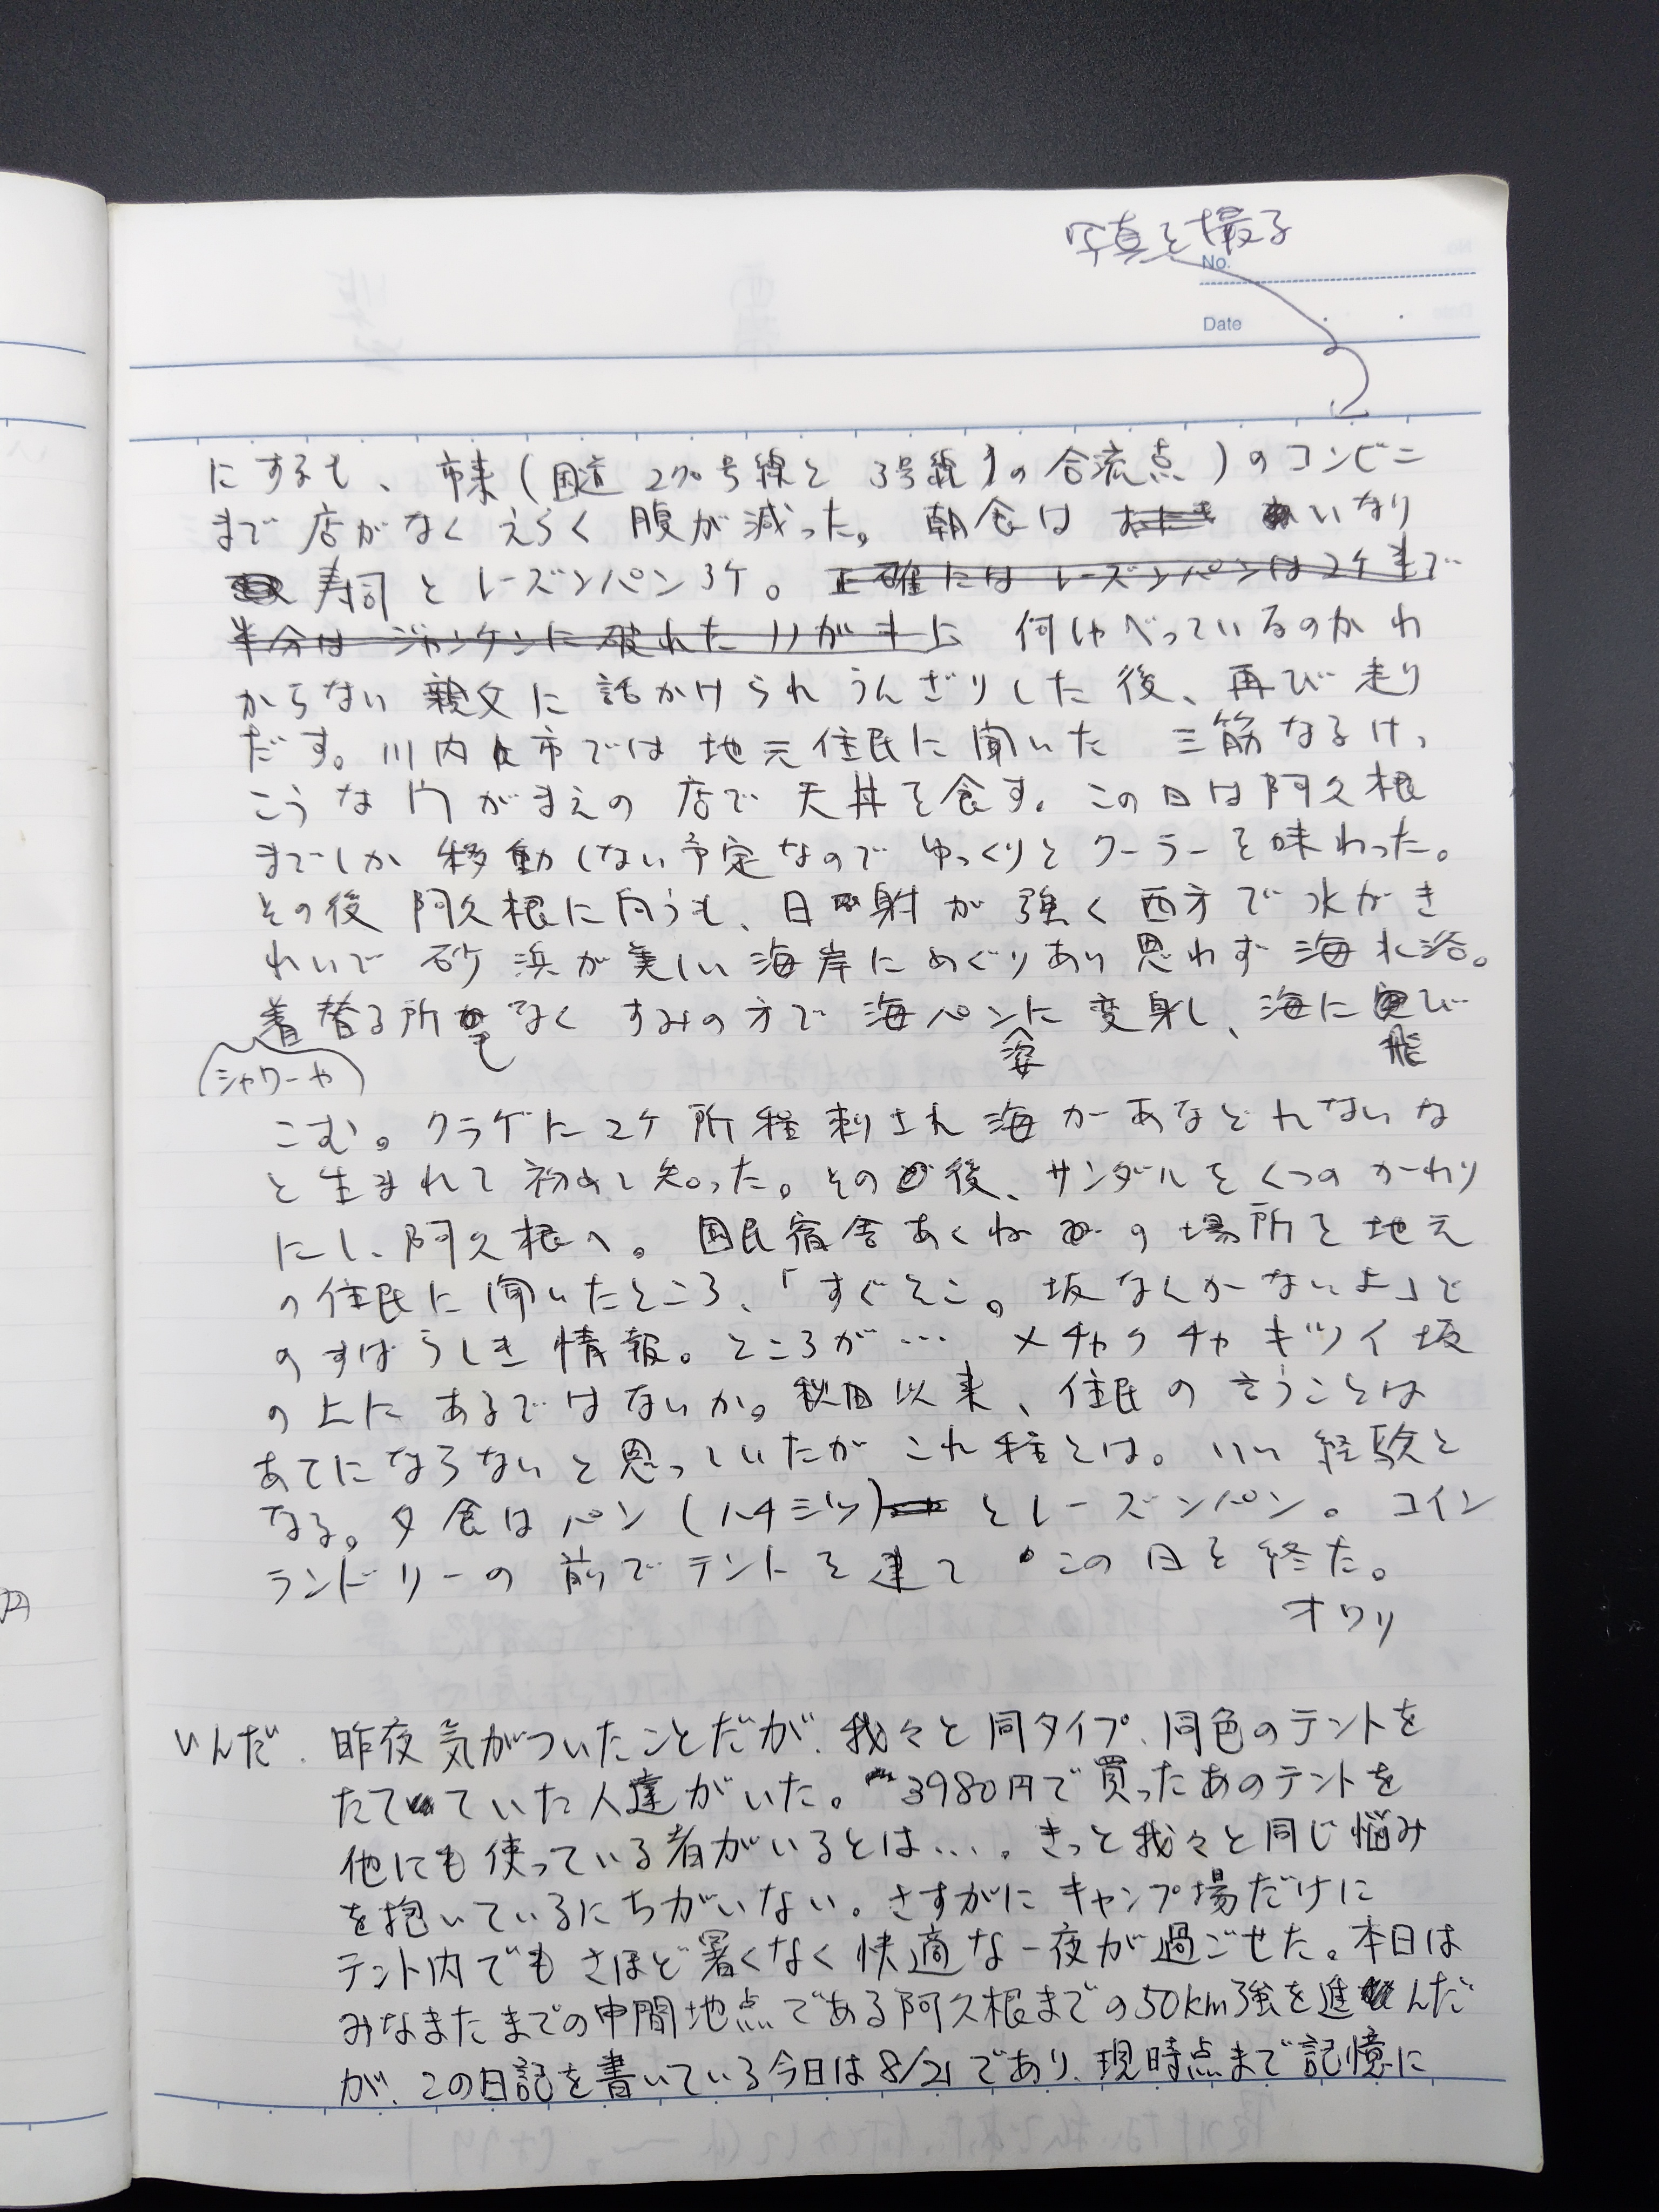 写真を撮る
No.
Date
にするも、市来(国道270号線と3号線の合流点)のコンビニ
まで店がなくえらく腹が減った。朝食は いなり
寿司とレーズンパン3ケ。正確にはレーズンパンは2ケ半で
半分はジャンケンに破れた 何しゃべっているのかわ
からない親父に話かけられうんざりした後、再び走り
だす。川内市では地元住民に聞いた 三筋なるけっ
こうな門がまえの店で天丼を食す。この日は阿久根
までしか移動しない予定なのでゆっくりとクーラーを味わった。
その後阿久根に向うも、日射が強く西方で水がき
れいで砂浜が美しい海岸にめぐりあり思わず海水浴。
着替る所もなくすみの方で海パンに変身し、海に飛び
シャワーや
姿
こむ。クラゲに2ケ所程刺され海があなどれないな
と生まれて初めし知った。その後、サンダルをくつのかわり
にし、阿久根へ。国民宿舎あくねの場所を地元
の住民に聞いたところ、「すぐそこ。坂なんかないよ」と
のすばらしき情報。ところが… メチャクチャキツイ坂
の上にあるではないか。秋田以来、住民の言うことは
あてにならないと思っしいたがこれ程とは。いい経験と
なる。夕食はパン(ハチミツ)とレーズンパン。コイン
ランドリーの前でテントを建て この日を終た。
オワリ
いんだ. 昨夜気がついたことだが、我々と同タイプ、同色のテントを
たてていた人達がいた。3980円で買ったあのテントを
他にも使っている者がいるとは…。きっと我々と同じ悩み
を抱いているにちがいない。さすがにキャンプ場だけに
テント内でもさほど暑くなく快適な一夜が過ごせた。本日は
みなまたまでの中間地点である阿久根までの50km強を進んだ
が、この日記を書いている今日は8/21であり、現時点まで記憶に